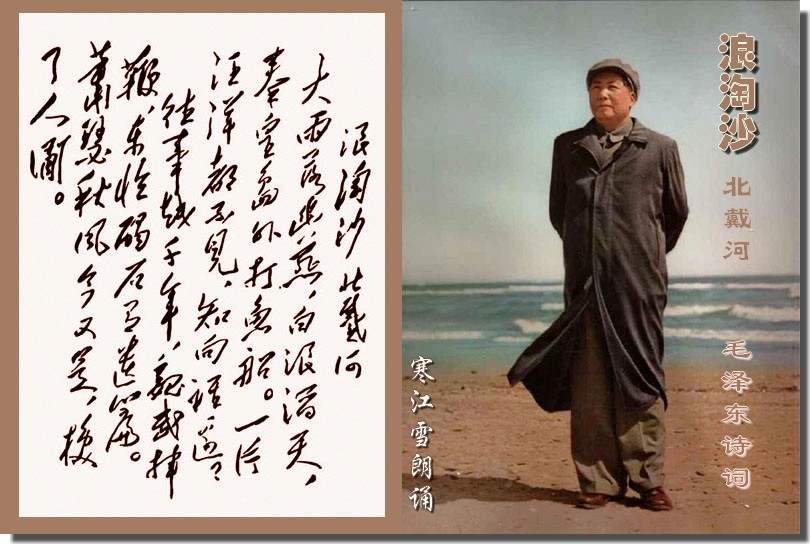 浪淘沙 北戴河
大雨落幽燕，白浪滔天，
秦皇島外打魚船。一片
汪洋都不見，知向誰邊
往事越千年，魏武揮
鞭，东临碣石有遺篇。
蕭瑟秋風今又是，換
了人间。
浪淘沙
北戴河
毛泽东诗词
寒江雪朗诵